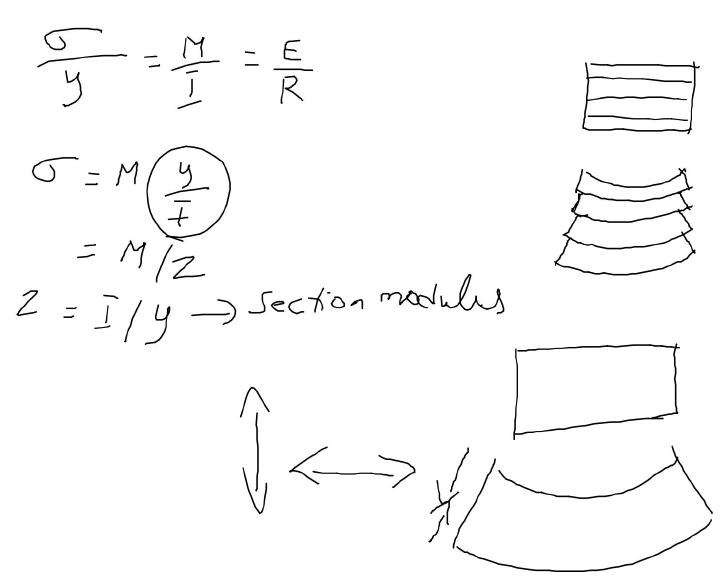 σ/y = M/I = E/R
σ = M (y/I)
= M/Z
Z = I/y → section modulus